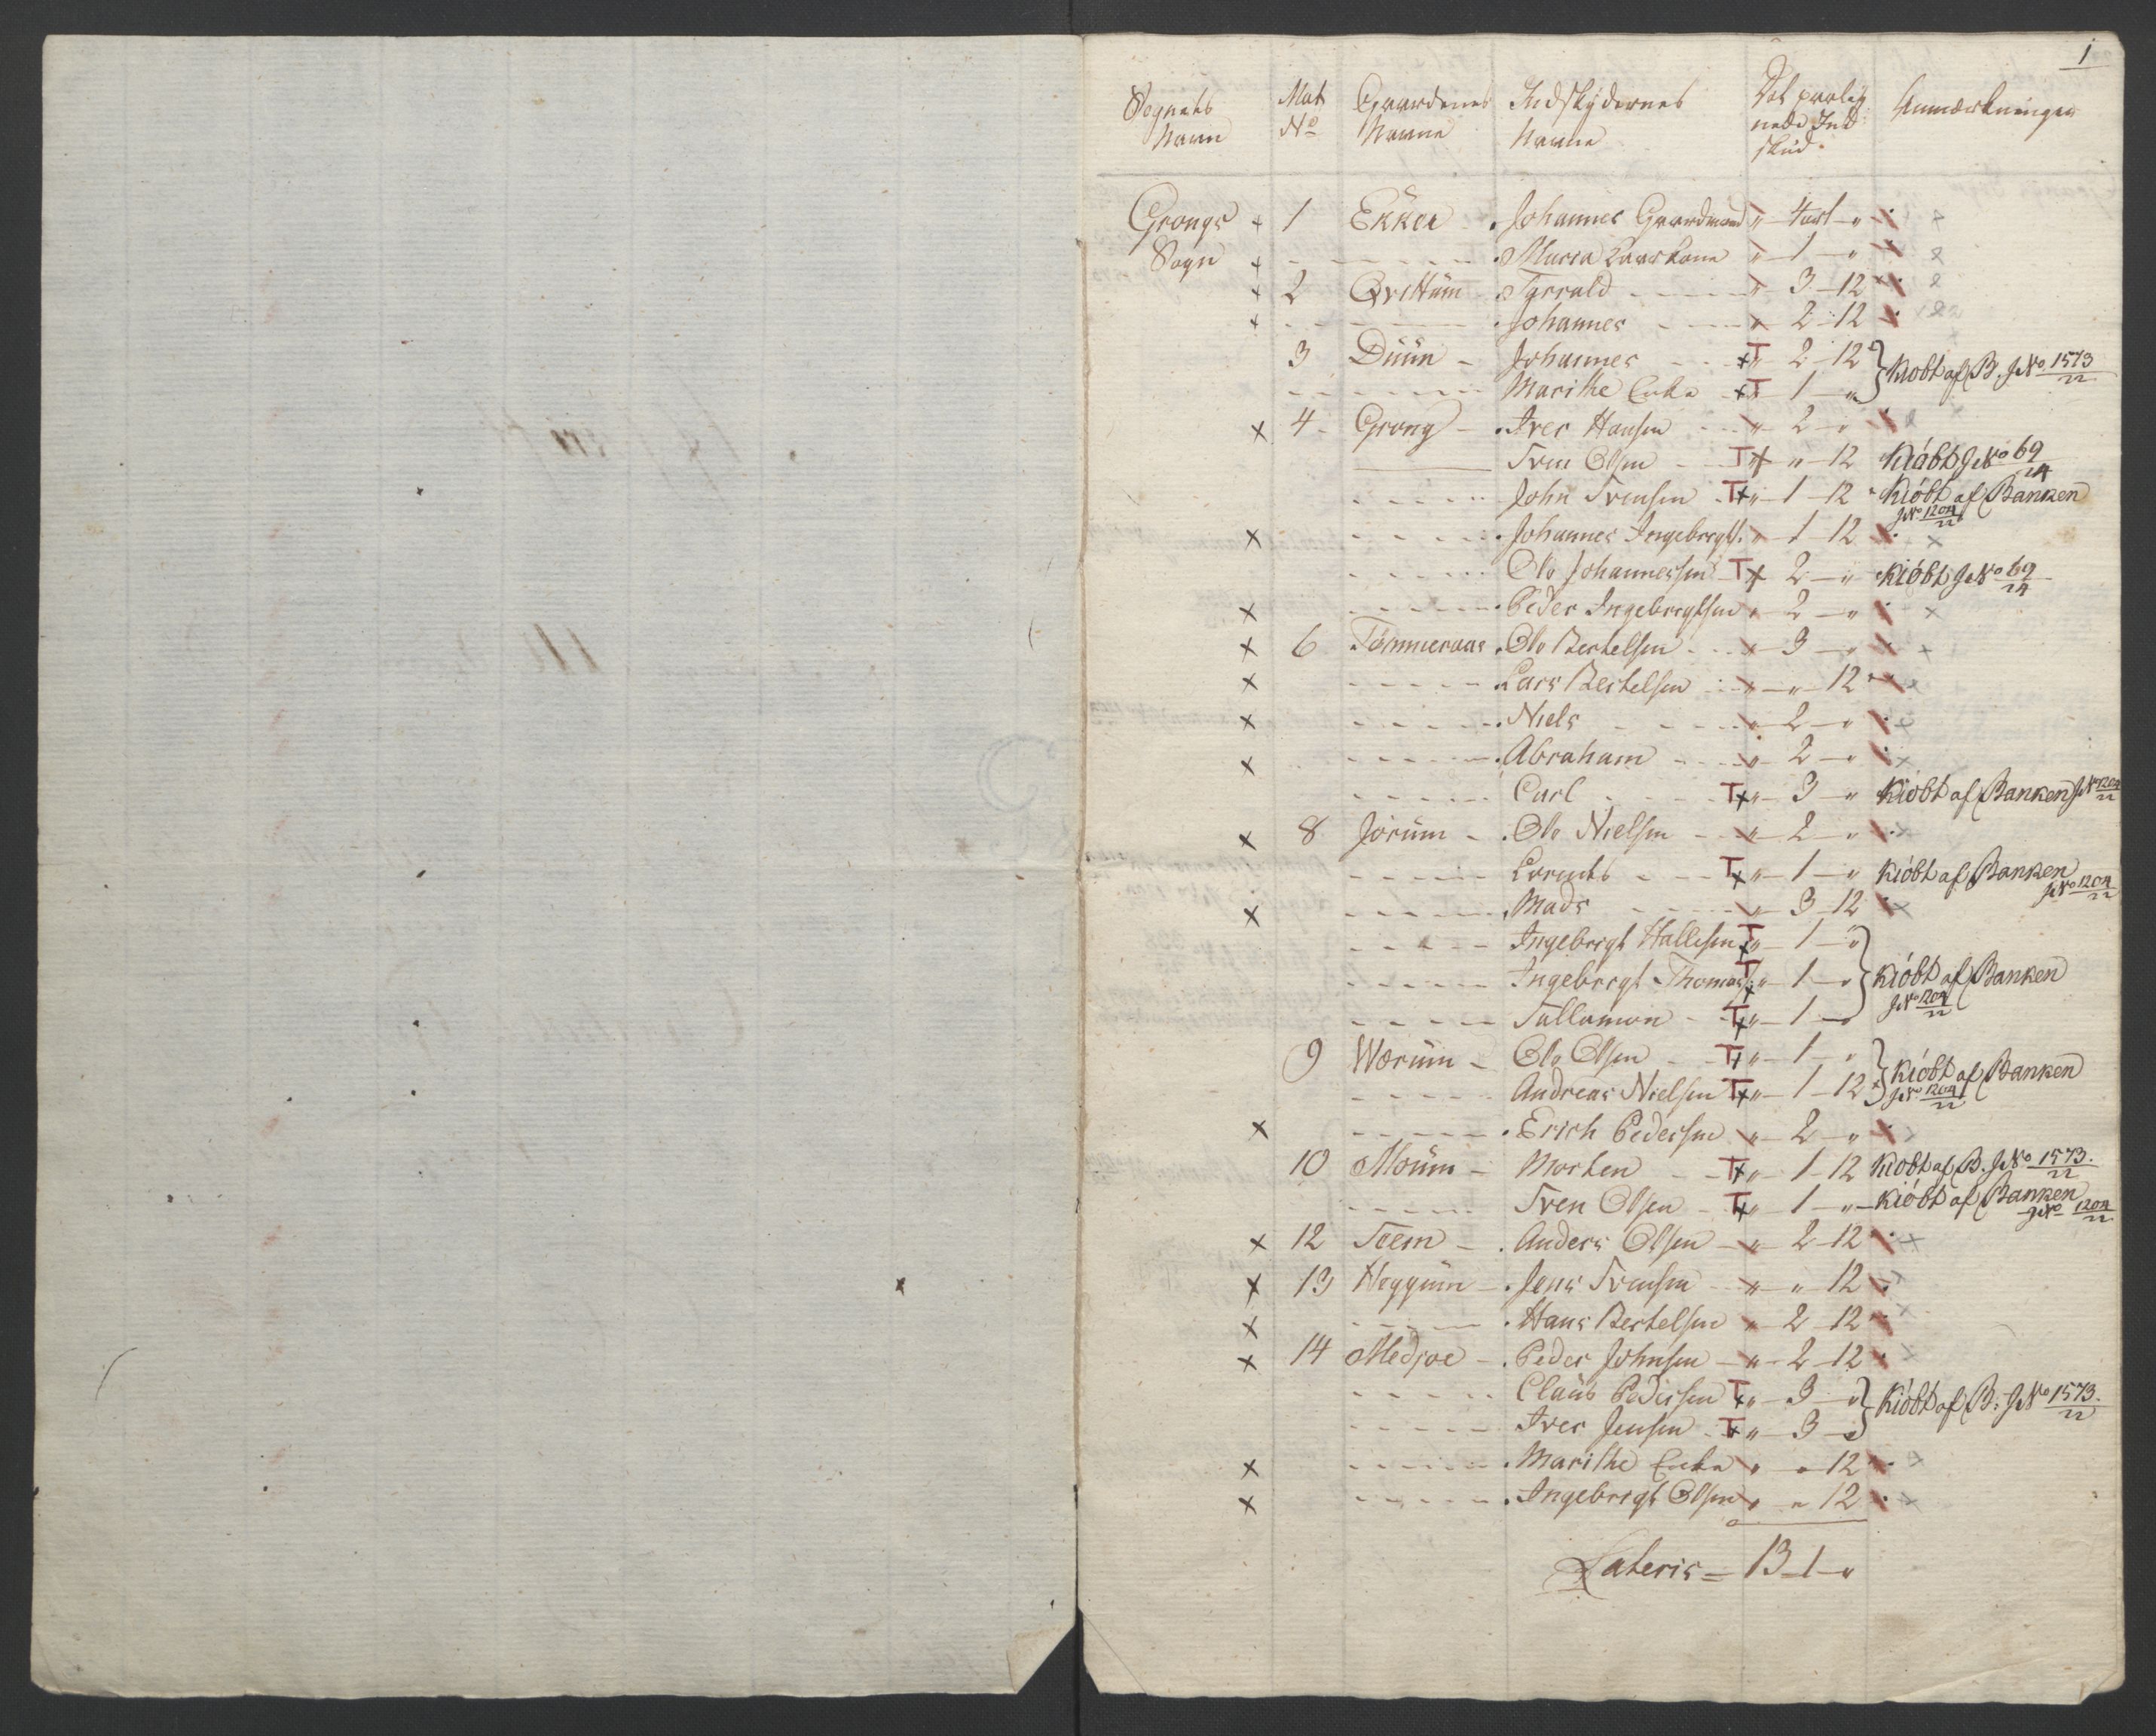 1
Sognets Navn
Mat No
Gaardenes Navne
Indskydernes Navne
Det paalignede Indskud.
Anmærkninger
Grongs Sogn + 1 Ekker . Johannes Gaardmand " 4 ort "
+ . Maria " 1 "
+ 2 . 3 12
+ . Johannes " 2 12
3 Duun Johannes T 2 12 } Kiøbt af B. JNo 1573/22
Marithe Enke T 1 "
x 4 Grong . Iver Hansen " 2 "
Sven Olsen T " 12 Kiøbt JNo 69/24
John Svensen T " 1 12 Kiøbt af Banken JNo 1204/22
x . Johannes Ingebrigts. " 1 12
Ole Johannessen T 2 " Kiøbt JNo 69/24
x . Peder Ingebrigtsen " 2 "
x 6 Tømmeraas . Ole Bertelsen 3 "
x . Lars Bertelsen " 12
x . Niels " 2 "
x . Abraham " 2 "
Carl T " 3 " Kiøbt af Banken JNo 1204/22
x 8 Jørum . Ole Nielsen " 2 "
Lorents T " 1 " Kiøbt af Banken JNo 1204/22
x . Mads " 3 12
Ingebrigt Hallesen T " 1 "
Ingebrigt Thomas. T " 1 " } Kiøbt af Banken JNo 1204/22
Tollamon T " 1 "
9 Wærum Ole Olsen T " 1 " } Kiøbt af Banken
Andreas Nielsen T " 1 12 JNo 1204/22
x . Erich Pedersen " 2 "
10 Moum Morten T " 1 12 Kiøbt af B. JNo 1573/22
Sven Olsen T " 1 " Kiøbt af Banken JNo 1204/22
x 12 . Anders Olsen " 2 12
x 13 Heggum . Jens Svensen " " 12
x . Hans Bertelsen " 2 12
x 14 Medjoe . Peder Johnsen " 2 12
Claus Pedersen T " 3 " } Kiøbt af B: JNo 1573/22
Iver Jensen T " 3 "
x . Marithe Enke " " 12
x . Ingebrigt Olsen " " 12
Lateris = 13 1 "